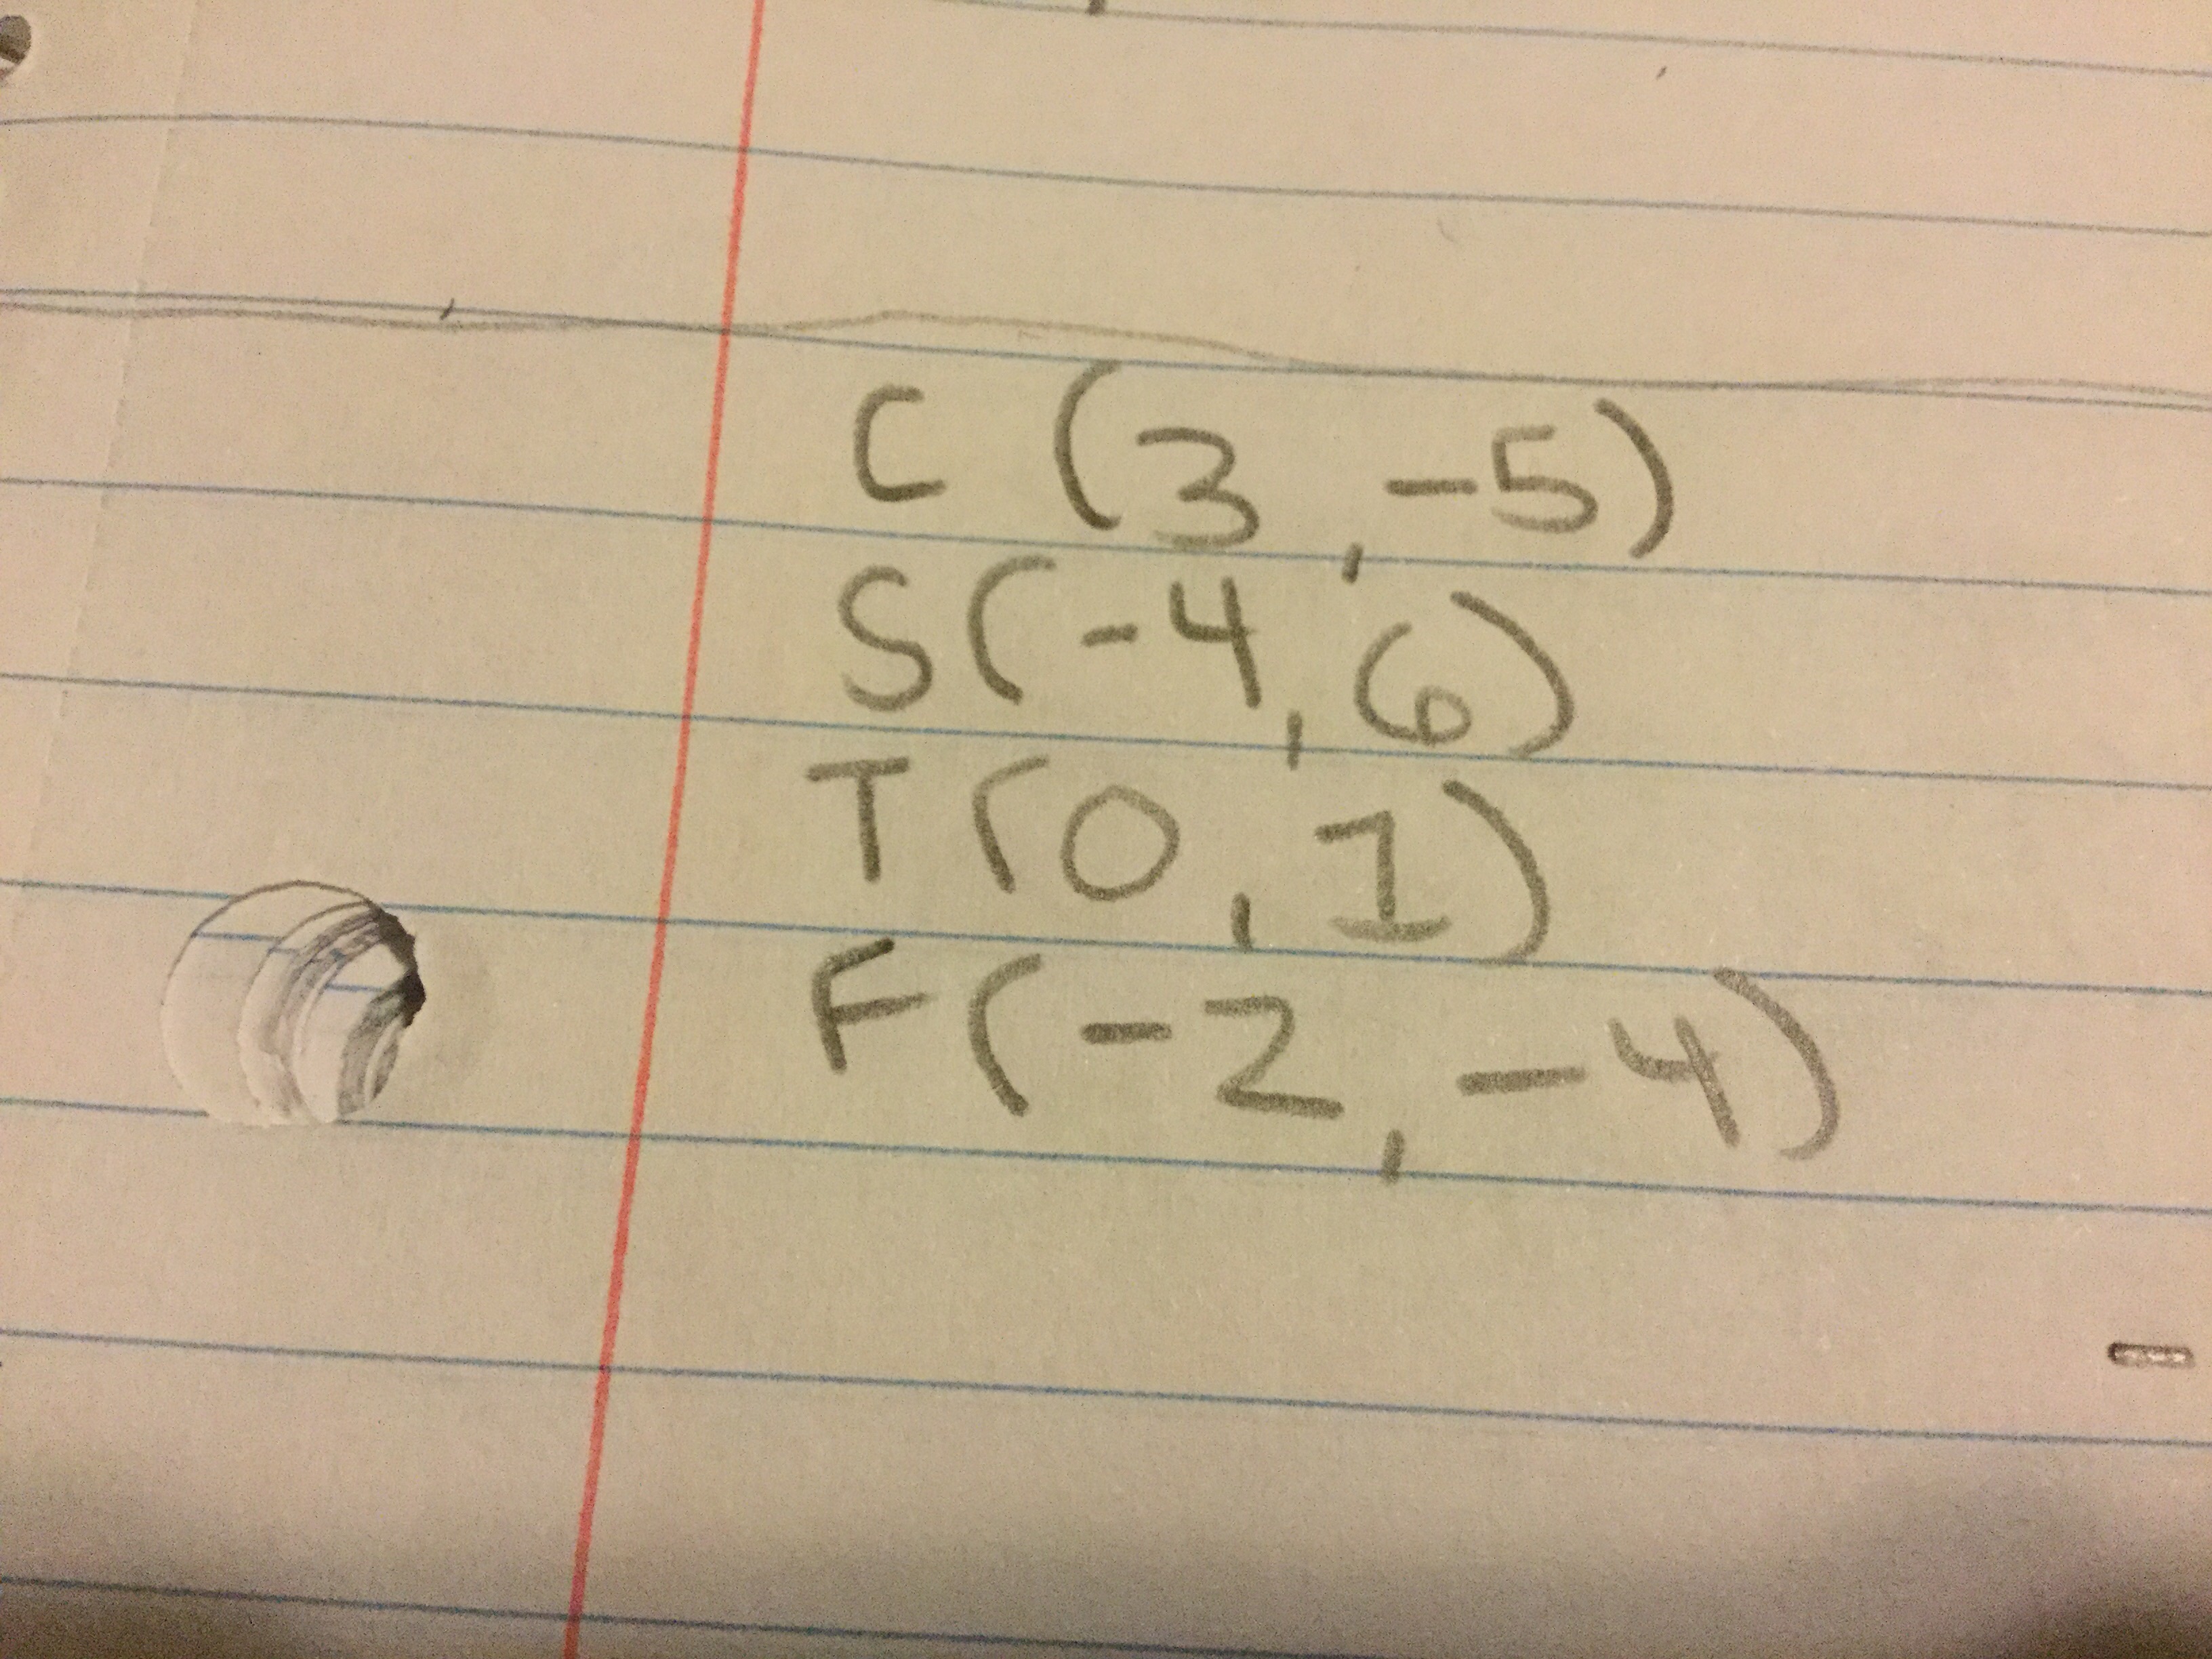 C (3, -5)
S(-4, 6)
T(0, 1)
F(-2, -4)